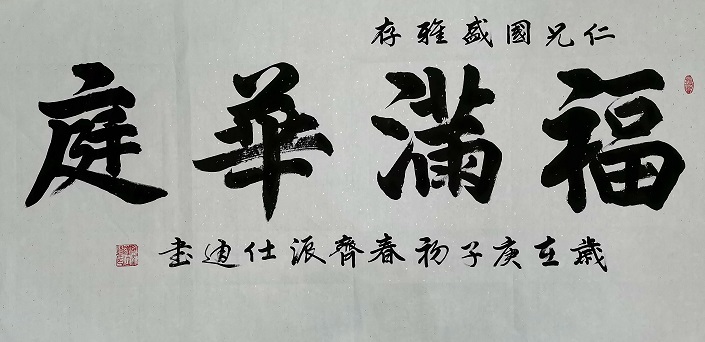 仁兄國盛雅存
福滿華庭
歲在庚子初春齊派仕迪書